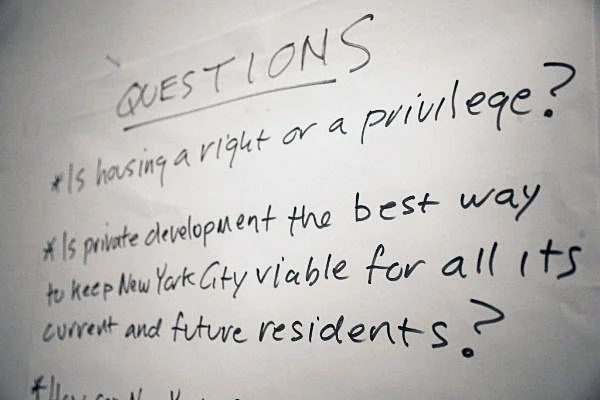 QUESTIONS
*Is housing a right or a privilege?
*Is private development the best way
to keep New York City viable for all its
current and future residents?